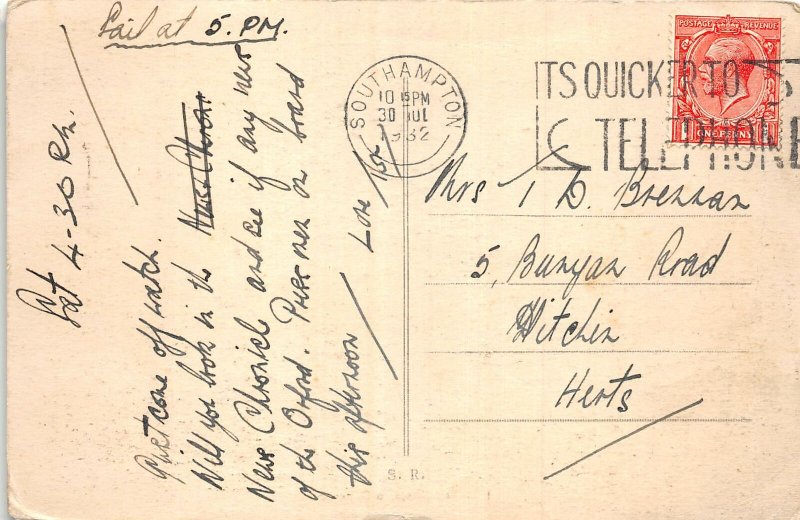 Sail at 5. PM.
Sat 4-30 Pm.
Just come off watch.
Will you look in the
News Chronicle and see if any news
of the Oxford. Press men on board
this afternoon
Love
SOUTHAMPTON
10 15PM
30 JUL
1932
ITS QUICKER TO
TELEPHONE
POSTAGE REVENUE
ONE PENNY
Mrs D. Brennan
5, Bunyan Road
Hitchin
Herts
S. R.